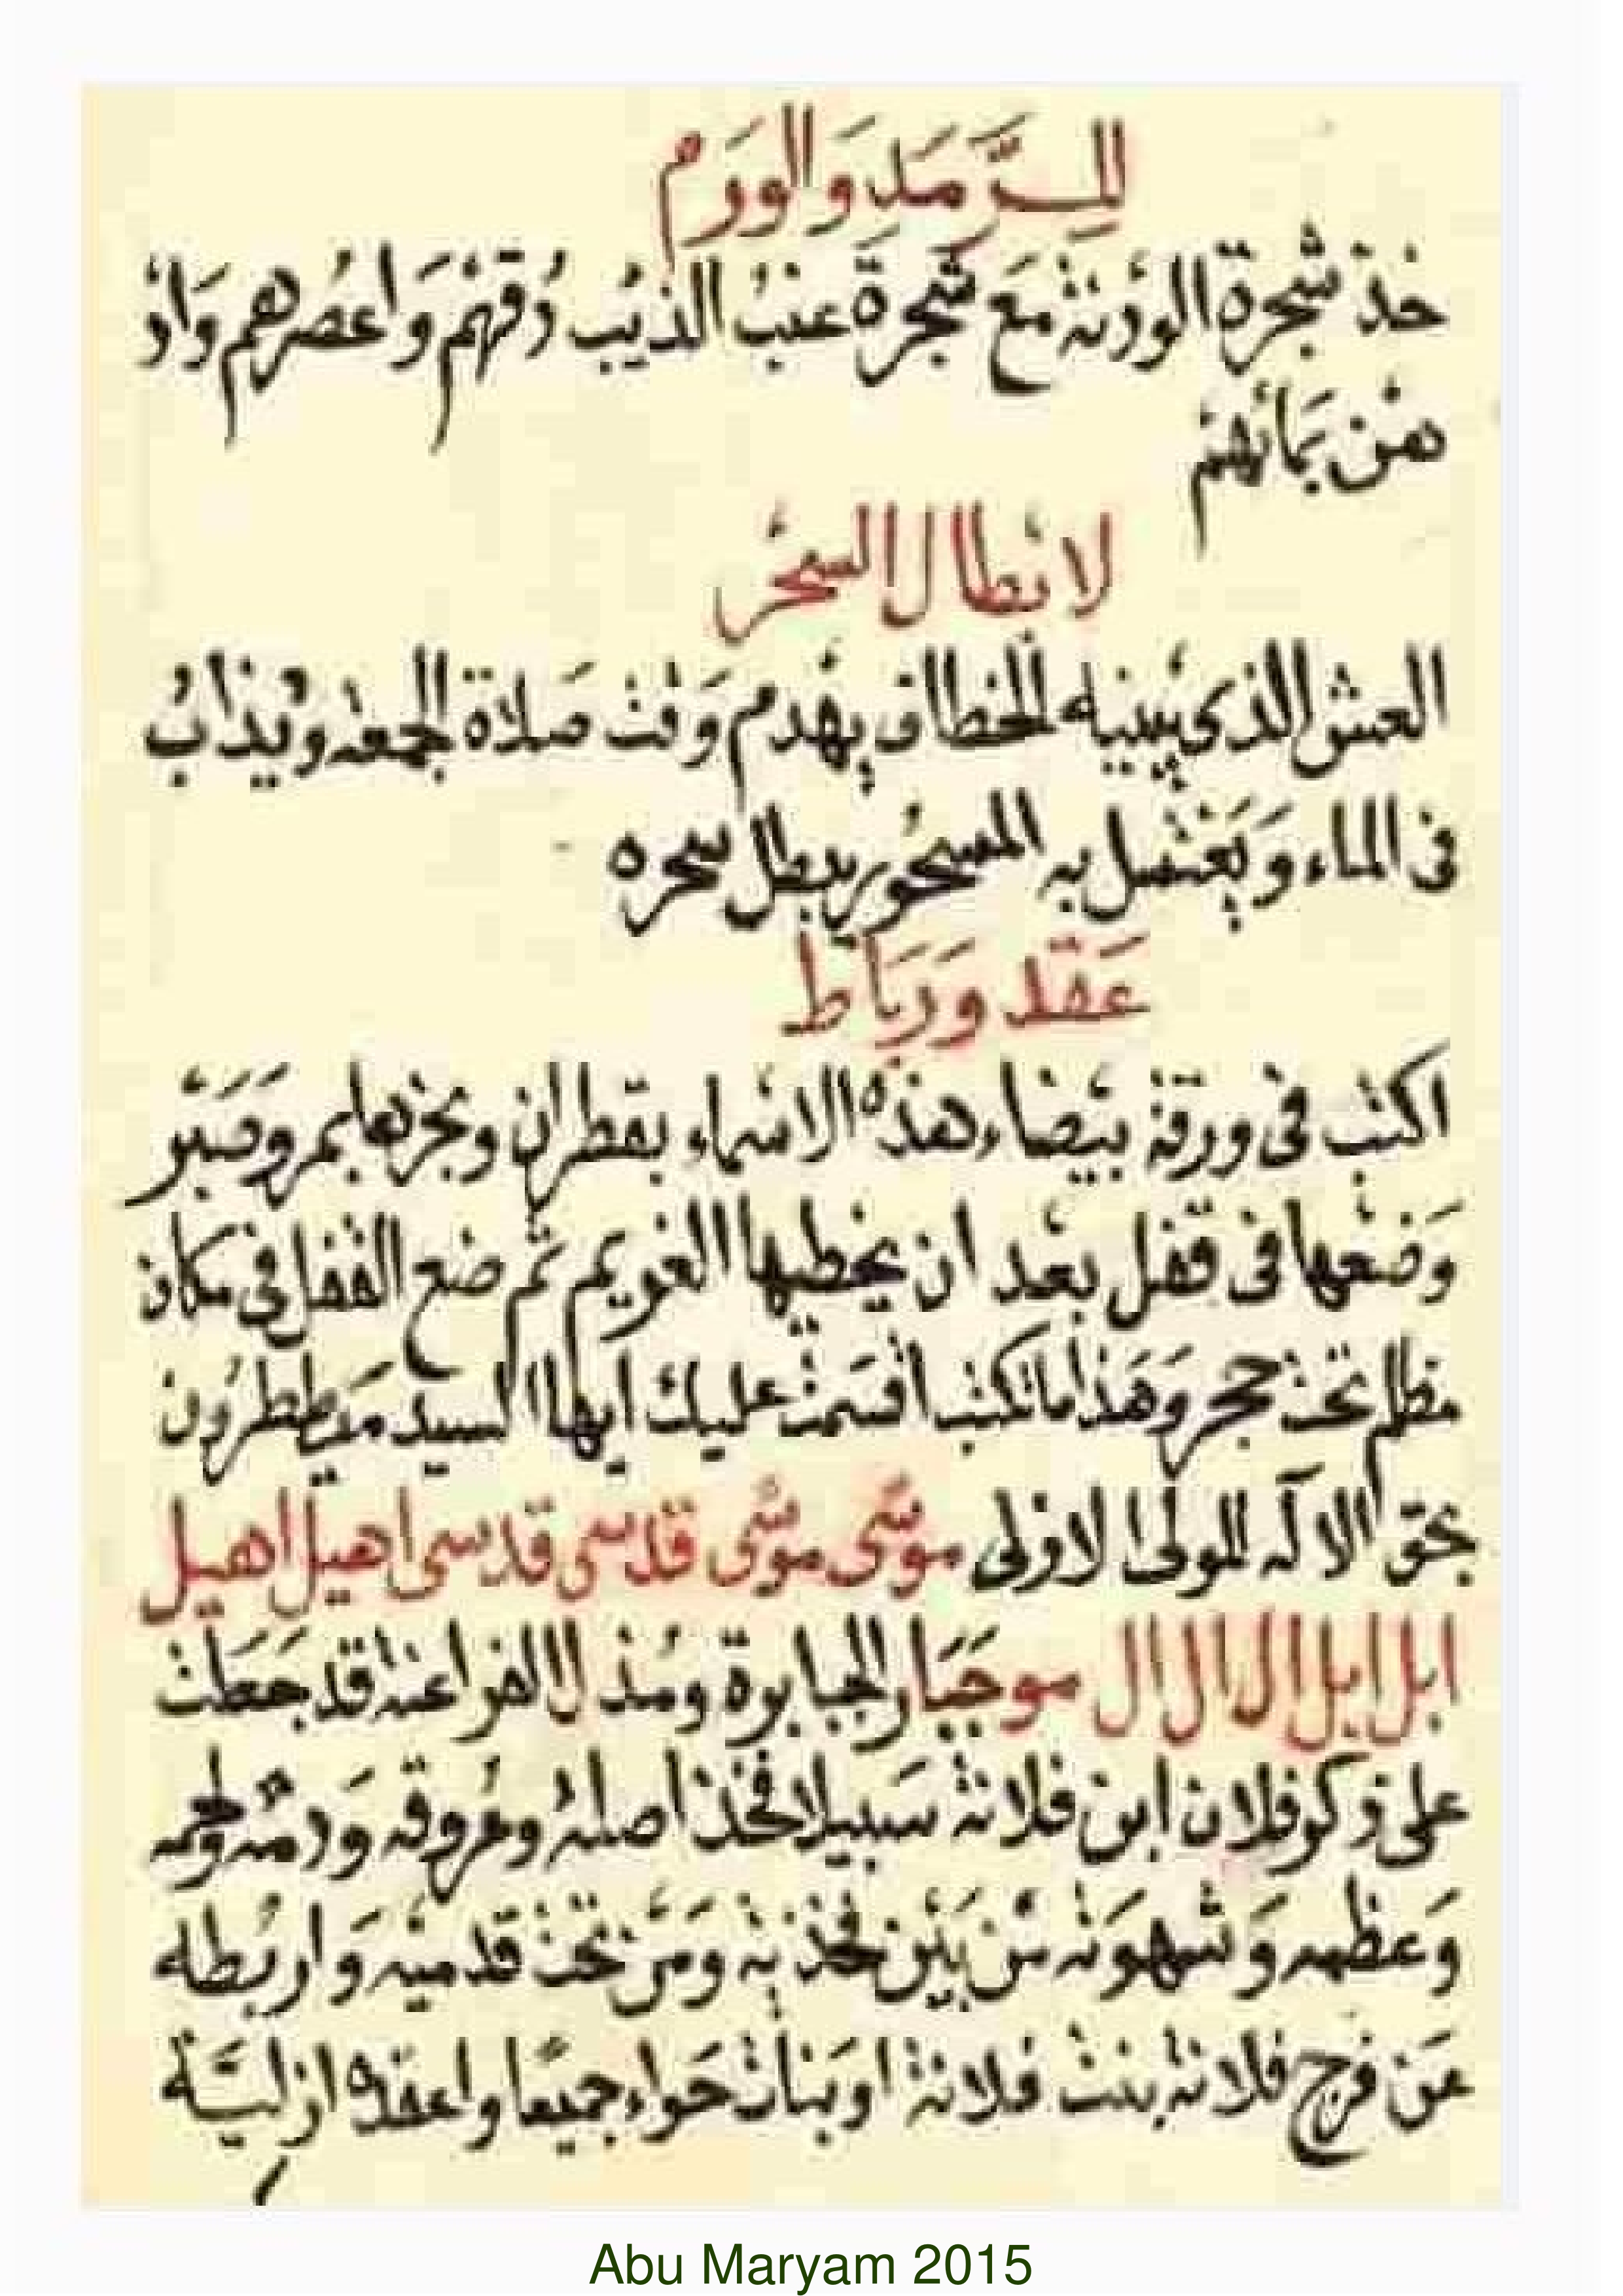 للسَّرمَدِ وَالوَرَم
خذ شجرة الودنة مَع شجرة عنبُ الذيب دُقهُم وَاعصُرهم وَاد
هن بمَائهم
لابطال السحر
العش الذى يبنيه الخطاف يهدم وَقت صَلاة الجمعه ويُذابُ
فى الماء وَيَغتسل به المسحُور يبطل سحره
عَقد وَرِبَاط
اكتب فى ورقة بيضاء هذه الاسماء بقطران وبخرها بمر وصَبَر
وَضعها فى قفل بعد ان يخطيها الغريم ثم ضع القفل فى مكان
مظلم تحت حجر وَهَذا ما تكتب اقسَمت عليك ايها السيد مَيططرُون
بحق الالَه المولى الازلى موسى موسى قدسى قدسى اهيل اهيل
ابل ابل ال ال ال ال مو جبَار الجبابرة ومُذل الفراعنه قد جَعَلت
على ذكر فلان ابن فلانة سَبيلا فخذ اصلهُ وعرُوقه وَدمُه ولحمه
وَعظمه وَشهوَته مِن بَين فخذيه وَمِن تحت قدميه وَاربُطه
عَن فرج فلانة بنت فلانة او بَنات حَواء جميعًا واعقده ازليَّة
Abu Maryam 2015